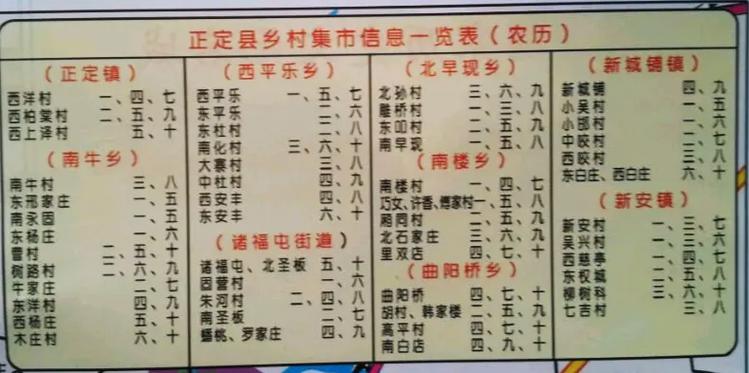 正定县乡村集市信息一览表（农历）
（正定镇）
西洋村 一、四、七
西柏棠村 二、五、九
西上泽村 五、十
（南牛乡）
南牛村 三、八
东邢家庄 一、五
南永固 一、五
东杨庄 一、六
曹村 二、五、十
树路村 二、六、九
牛家庄 二、七
东洋村 四、九
西杨庄 五、十
木庄村 六、十
（西平乐乡）
西平乐 一、五、七
东平乐 二、六
东杜村 二、八
南化村 三、六、十
大寨村 三、八
中杜村 四、九
西安丰 四、八
东安丰 六、十
（诸福屯街道）
诸福屯、北圣板 五、十
固营村 一、六
朱河村 二、四、八
南圣板 二、七
蟠桃、罗家庄 四、九
（北早现乡）
北孙村 三、六、九
雕桥村 一、三、八
东叩村 二、五、九
南早现 一、五、八
（南楼乡）
南楼村 一、四、七
巧女、许香、傅家村 一、五、八
厢同村 二、五、九
北石家庄 三、六、九
里双店 四、七、十
（曲阳桥乡）
曲阳桥 四、七、十
胡村、韩家楼 二、五、九
高平村 四、七、十
南白店 四、九、十
（新城铺镇）
新城铺 四、九
小吴村 一、五
小邯村 一、六
中咬村 一、七
西咬村 三、八
东白庄、西白庄 六、十
（新安镇）
新安村 一、三、七
吴兴村 一、三、六
西慈亭 一、四、七
东权城 二、五、八
柳树科 三、六、十
七吉村 三、八